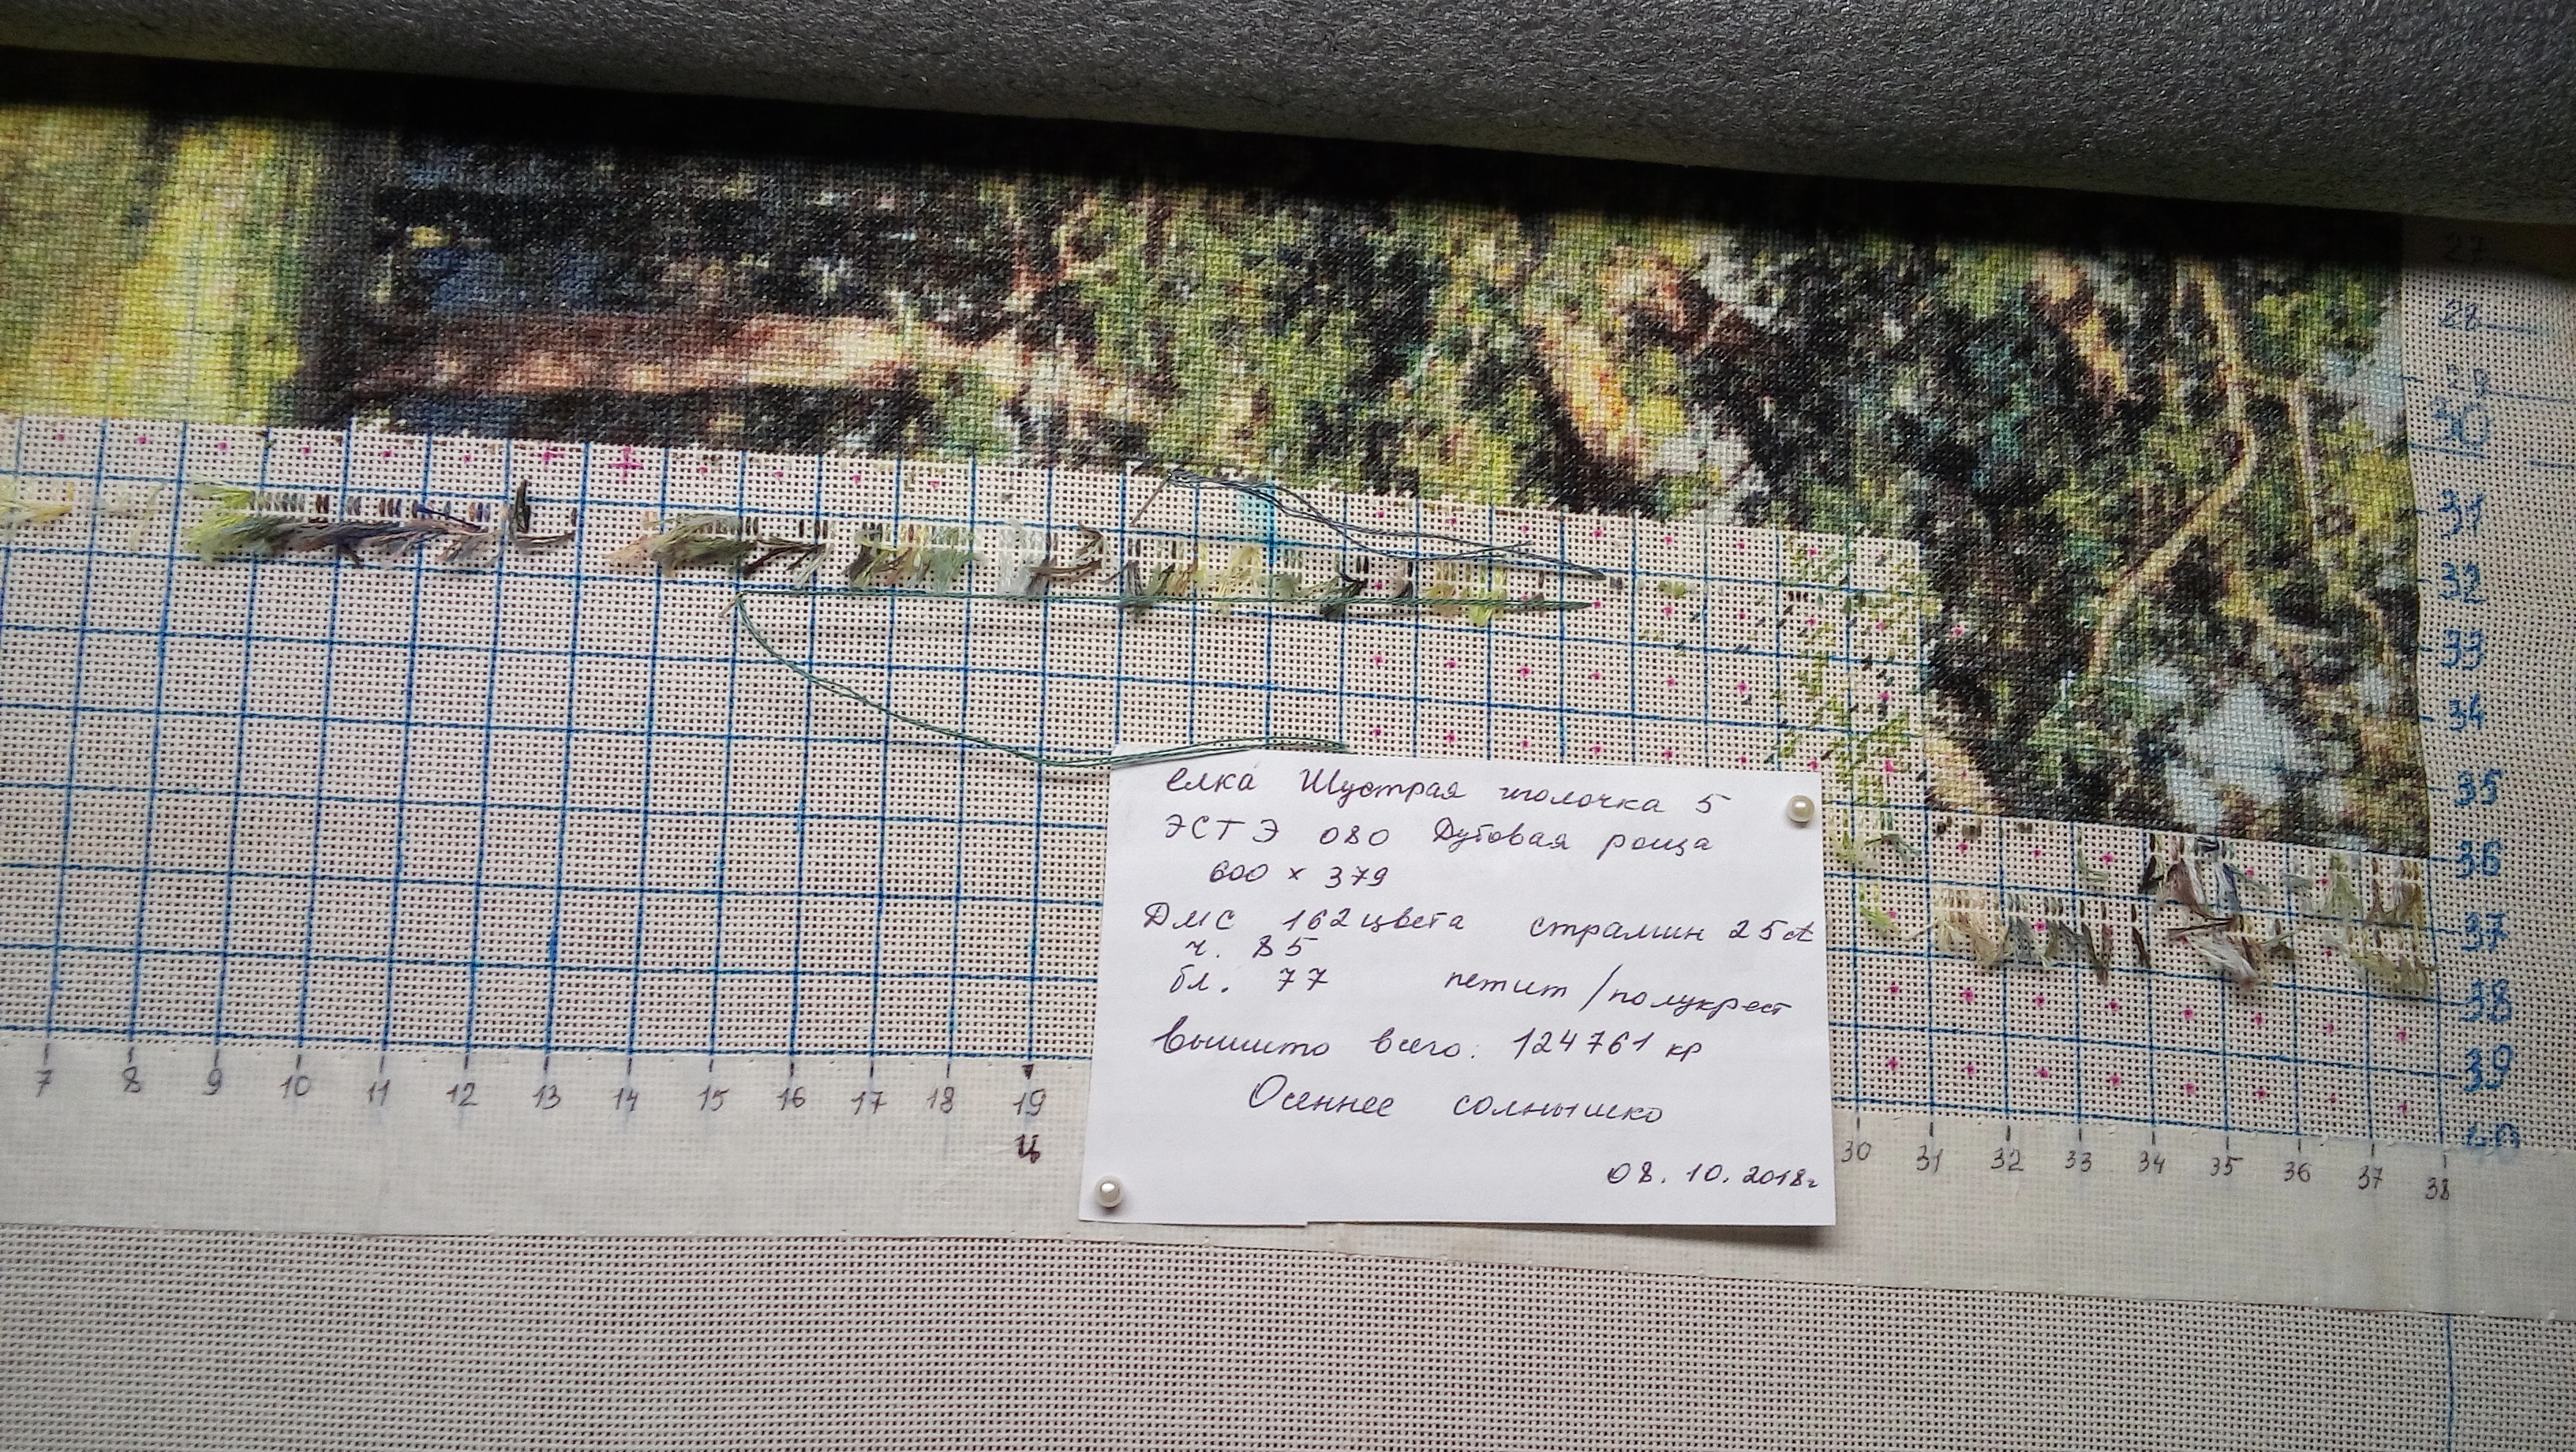 27
28
29
30
31
32
33
34
35
36
37
38
39
40
елка Шустрая иголочка 5
ЭСТЭ 080 Дубовая роща
600 × 379
ДМС 162 цвета страмин 25ct
ч. 85
бл. 77 петит / полукрест
Вышито всего: 124761 кр
Осеннее солнышко
08.10.2018г
7 8 9 10 11 12 13 14 15 16 17 18 19 30 31 32 33 34 35 36 37 38
ц